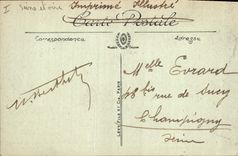 Imprimé Illustré
Carte Postale
Correspondance
Adresse
Melle Evrard
48 bis rue de Sucy
Champigny
Seine
LEVY FILS ET CIE PARIS